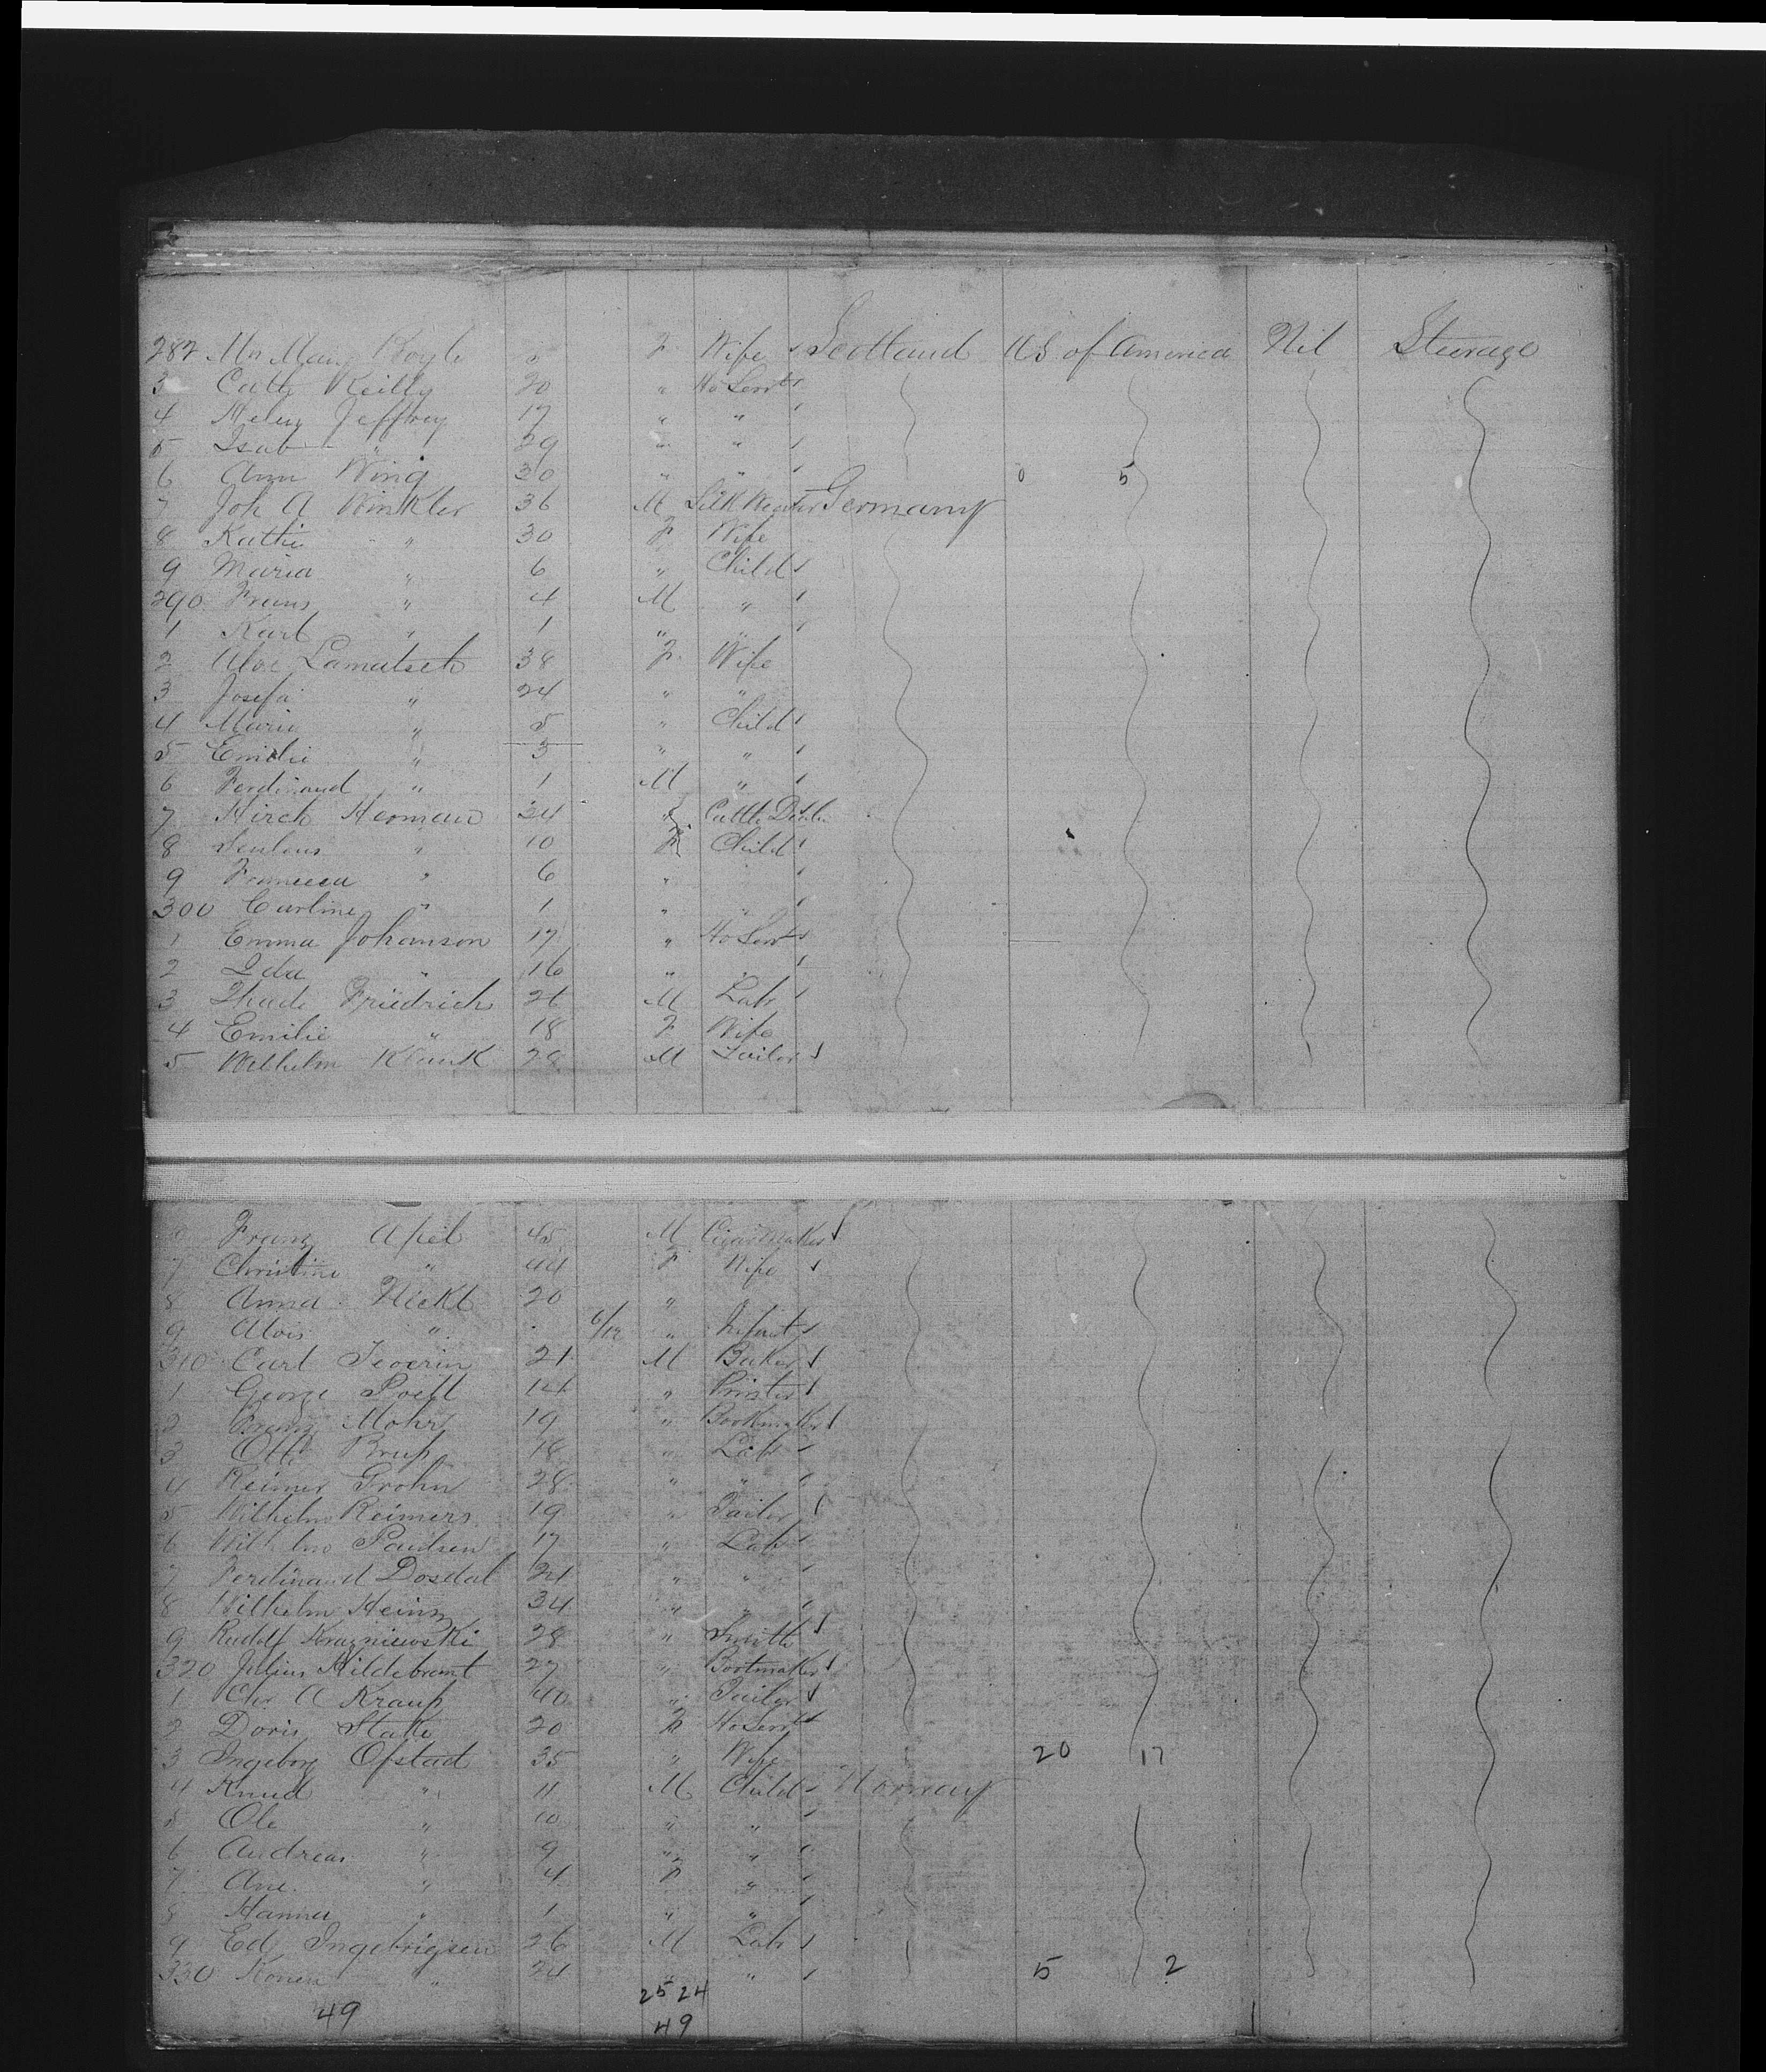 282 Mrs Mary Boyle " F Wife Scotland US of America Nil Steerage
3 Cath Reilly 20 " Ho Servt
4 Helen Jeffrey 17 " "
5 Isab " 29 " "
6 Ann Wing 30 " " 0 5
7 Joh A Winkler 36 M Silk Weaver Germany
8 Kathi " 30 F Wife
9 Maria " 6 " Child
290 Frans " 4 M "
1 Karl " 1 " "
2 Aloe Lamatsch 38 F Wife
3 Josefa " 24 " "
4 Marie " 5 " Child
5 Emilie " 3 " "
6 Ferdinand " 1 M "
7 Hirch Herman 34 " Cattle Dealer
8 " 10 F Child
9 Francisca " 6 " "
300 Carline " 1 " "
1 Emma Johanson 17 " Ho Servt
2 Ida " 16 " "
3 Thade Friedrich 26 M Labr
4 Emilie " 18 F Wife
5 Wilhelm Klauk 28 M Tailor
6 Franz Apel 45 M Cigar Maker
7 Christine " 44 F Wife
8 Anna Heckt 20 " "
9 Alois " 6/12 " Infant
310 Carl Severin 21 M Baker
1 George Poell 14 " Printer
2 Mohr 19 " Bookmaker
3 Otto Brup 18 " Labr
4 Reimer Frohn 28 " "
5 Wilhelm Reimers 19 " Tailor
6 Wilhelm Paulsen 17 " Labr
7 Ferdinand Dosdal 24 " "
8 Wilhelm Heinz 34 " "
9 Rudolf Kragniewski 28 " Smith
320 Julius Hildebrant 27 " Bootmaker
1 Chr A Kraup 40 " Tailor
2 Doris Stake 20 F Ho Servt
3 Ingeborg Ofstad 35 " Wife 20 17
4 Knud " 11 M Child Norway
5 Ole " 10 " "
6 Andreas " 9 " "
7 Ane " 4 F "
8 Hanna " 1 " "
9 Ed Ingebrigsen 26 M Labr
330 Konen " 24 " " 5 2
25 24
49 49